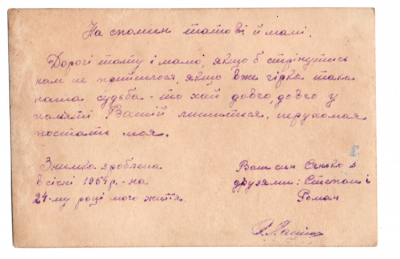 На спомин татові й мамі.
Дорогі тату і мамо, якщо б стрінутись
нам не прийшлося, якщо вже гірка така
наша судьба - то хай довго, довго у
памяті Вашій лишиться, нерухома
постать моя.
Знимка зроблена
в січні 196 р. - на
24-му році мого життя
Ваш син Сенько з
друзями: Степан і
Роман